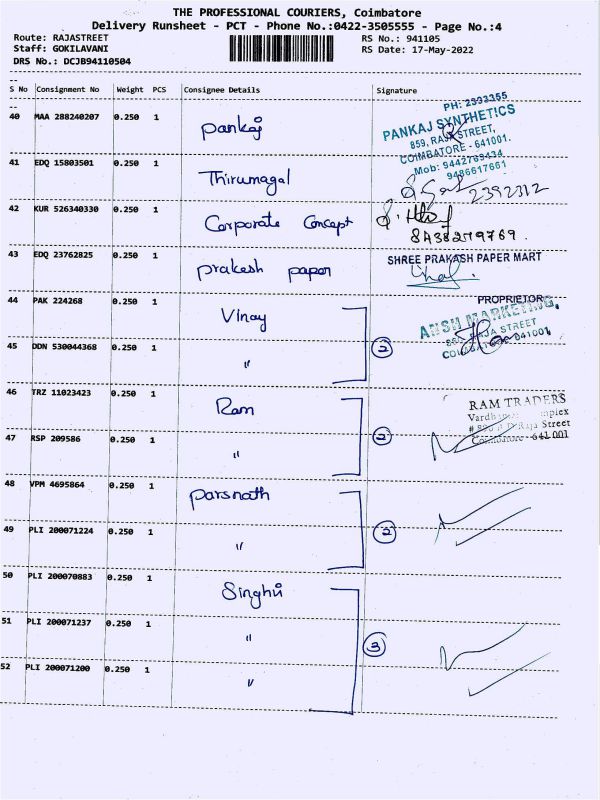 THE PROFESSIONAL COURIERS, Coimbatore
Delivery Runsheet - PCT - Phone No.:0422-3505555 - Page No.:4
Route: RAJASTREET
RS No.: 941105
Staff: GOKILAVANI
RS Date: 17-May-2022
DRS No.: DCJB94110504
S No Consignment No Weight PCS Consignee Details Signature
40 MAA 288240207 0.250 1 Pankaj
PH: 2393355
PANKAJ SYNTHETICS
859, RAJA STREET,
COIMBATORE - 641001.
Mob: 9442769434
9486617661
41 EDQ 15803501 0.250 1 Thirumagal
2392312
42 KUR 526340330 0.250 1 Corporate Concept
8438279769.
43 EDQ 23762825 0.250 1 prakesh paper
SHREE PRAKASH PAPER MART
PROPRIETOR
44 PAK 224268 0.250 1 Vinay
ANSH MARKETING,
RAJA STREET
COIMBATORE 641001
45 DDN 530044368 0.250 1 "
2
46 TRZ 11023423 0.250 1 Ram
RAM TRADERS
Raja Street
Coimbatore - 641 001
47 RSP 209586 0.250 1 "
2
48 VPM 4695864 0.250 1 Parsnath
49 PLI 200071224 0.250 1 "
2
50 PLI 200070883 0.250 1 Singhvi
51 PLI 200071237 0.250 1 "
3
52 PLI 200071200 0.250 1 "